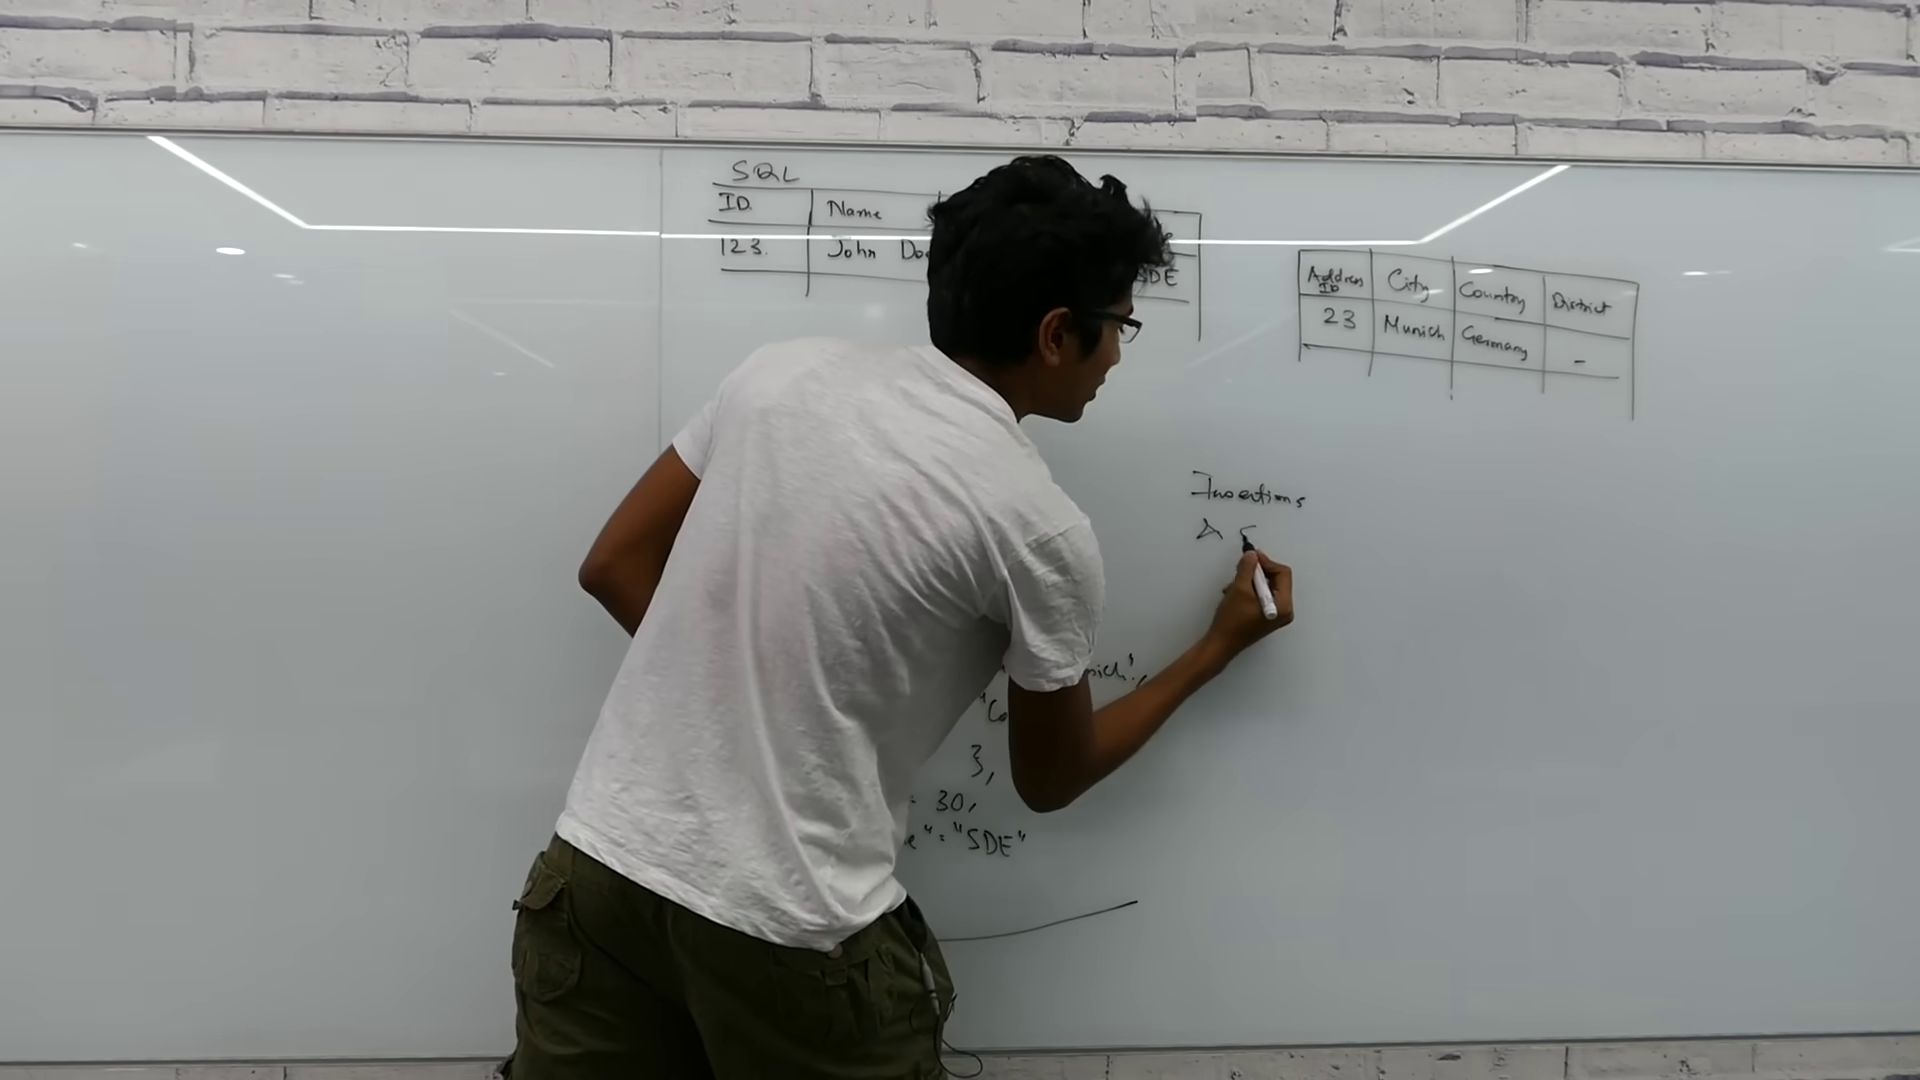 SQL
ID Name
123. John Doe
SDE
Address ID City Country District
23 Munich Germany -
Insertions
},
30,
e" = "SDE"